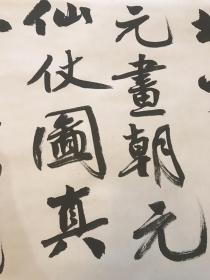 元畫朝元
仙仗圖真